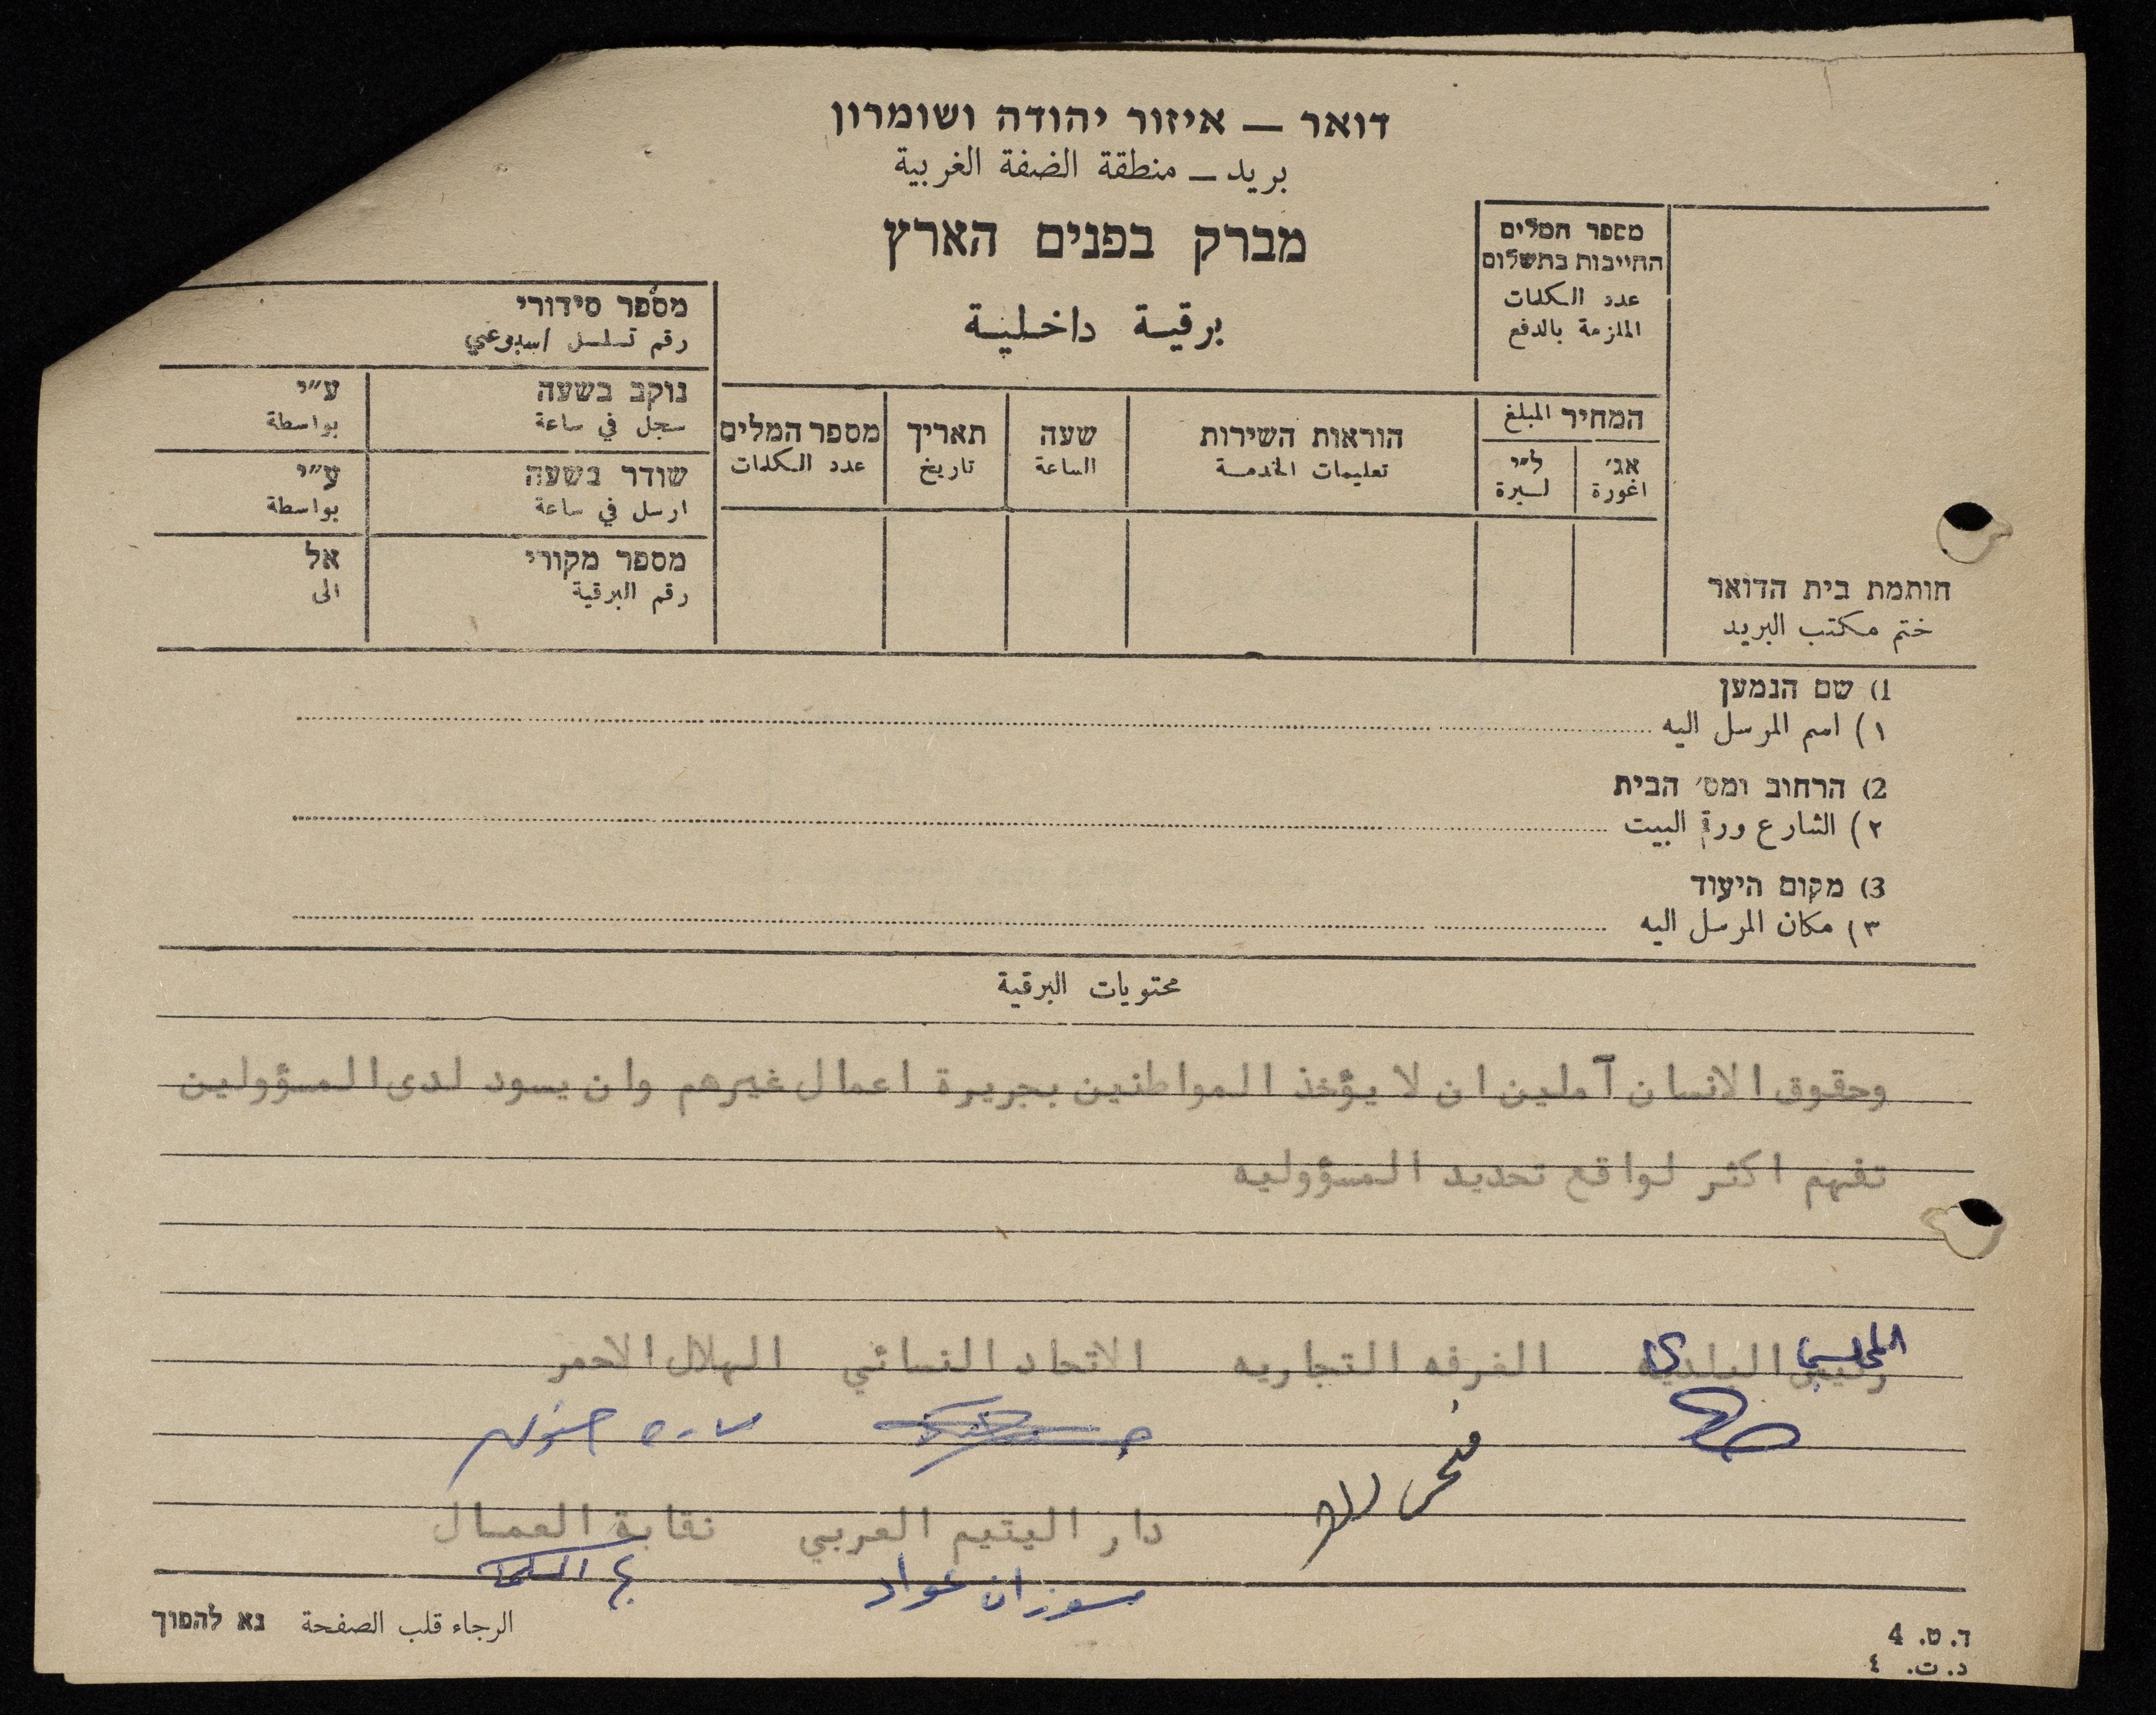 דואר — איזור יהודה ושומרון
بريد — منطقة الضفة الغربية
מברק בפנים הארץ
برقية داخلية
מספר המלים
החייבות בתשלום
عدد الكلمات
الملزمة بالدفع
המחיר المبلغ
אג׳ ל״י
اغورة لسيرة
הוראות השירות
تعليمات الخدمة
שעה
الساعة
תאריך
تاريخ
מספר המלים
عدد الكلمات
מספר סידורי
رقم تسلسل اسبوعي
נוקב בשעה ע״י
سجل في ساعة بواسطة
שודר בשעה ע״י
ارسل في ساعة بواسطة
מספר מקורי אל
رقم البرقية الى
חותמת בית הדואר
ختم مكتب البريد
1) שם הנמען
١) اسم المرسل اليه
2) הרחוב ומס׳ הבית
٢) الشارع ورقم البيت
3) מקום היעוד
٣) مكان المرسل اليه
محتويات البرقية
وحقوق الانسان آملين ان لا يؤخذ المواطنين بجريرة اعمال غيرهم وان يسود لدى المسؤولين
تفهم اكثر لواقع تحديد المسؤوليه
رئيس البلديه الغرفه التجاريه الاتحاد النسائي الهلال الاحمر
دار اليتيم العربي نقابة العمال
سوزان عواد
الرجاء قلب الصفحة נא להפוך
ד. ט. 4
د. ت. ٤